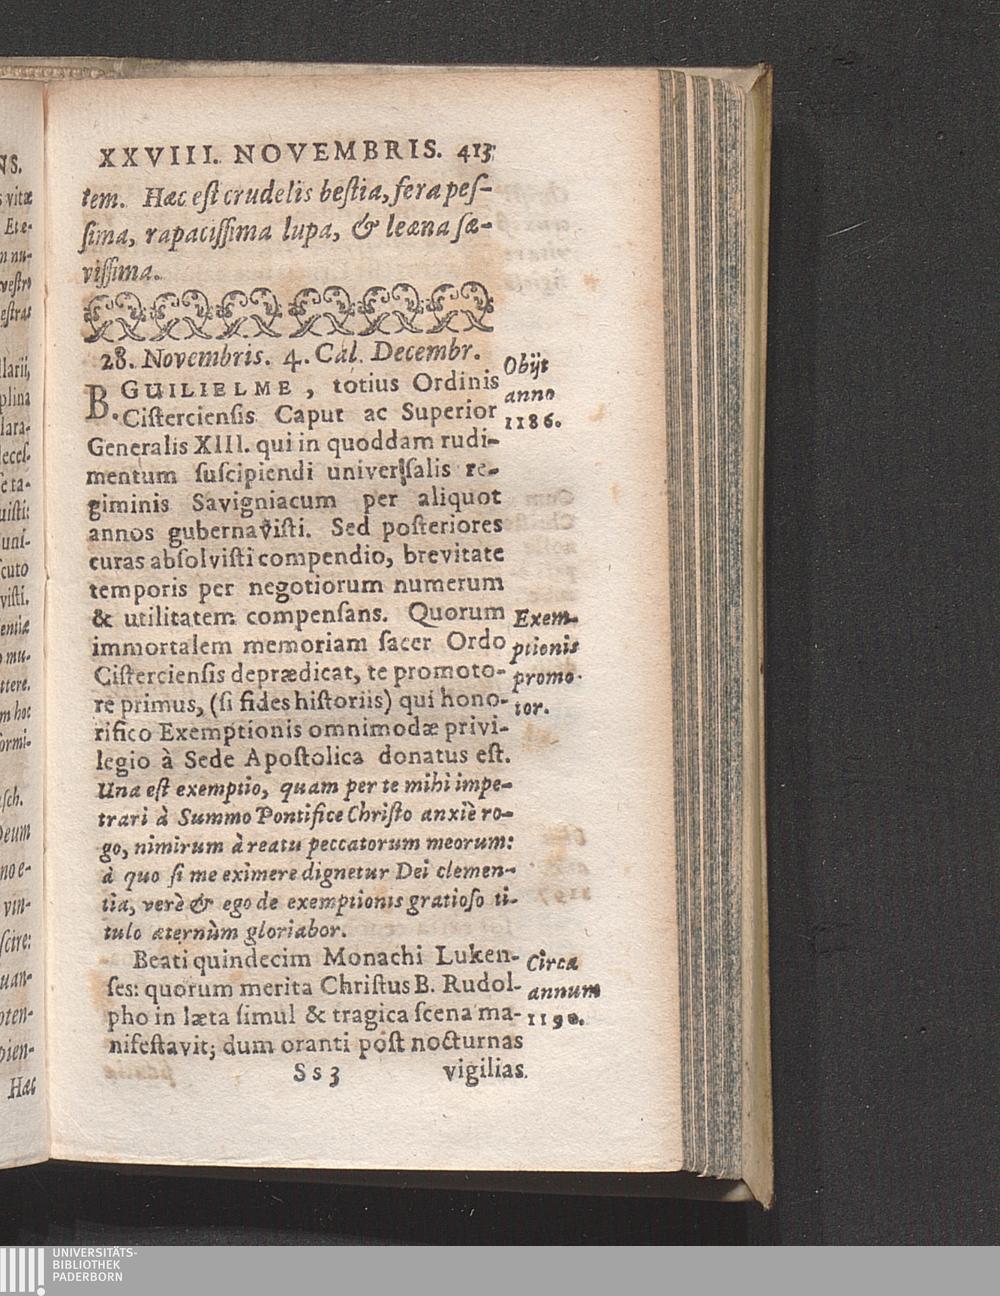 XXVIII. NOVEMBRIS. 413
tem. Hæc est crudelis bestia, fera pes-
sima, rapacissima lupa, & leæna sæ-
vissima.
28. Novembris. 4. Cal. Decembr.
B. GUILIELME, totius Ordinis
Cisterciensis Caput ac Superior
Generalis XIII. qui in quoddam rudi-
mentum suscipiendi universalis re-
giminis Savigniacum per aliquot
annos gubernavisti. Sed posteriores
curas absolvisti compendio, brevitate
temporis per negotiorum numerum
& utilitatem compensans. Quorum
immortalem memoriam sacer Ordo
Cisterciensis deprædicat, te promoto-
re primus, (si fides historiis) qui hono-
rifico Exemptionis omnimodæ privi-
legio à Sede Apostolica donatus est.
Una est exemptio, quam per te mihi impe-
trari à Summo Pontifice Christo anxiè ro-
go, nimirum à reatu peccatorum meorum:
à quo si me eximere dignetur Dei clemen-
tia, verè & ego de exemptionis gratioso ti-
tulo æternùm gloriabor.
Beati quindecim Monachi Luken-
ses: quorum merita Christus B. Rudol-
pho in læta simul & tragica scena ma-
nifestavit; dum oranti post nocturnas
Ss3 vigilias
Obijt
anno
1186.
Exem-
ptionis
promo-
tor.
Circa
annum
1190.
NS.
vitæ
Etæ-
nu-
vestri
estras
llarii,
plina
lara-
ta-
cuto
visti.
entiæ
mu-
ttere.
hoc
ormi-
sch.
Deum
no e-
vin-
scire:
uan-
oten-
pien-
Hæc
UNIVERSITÄTS-
BIBLIOTHEK
PADERBORN